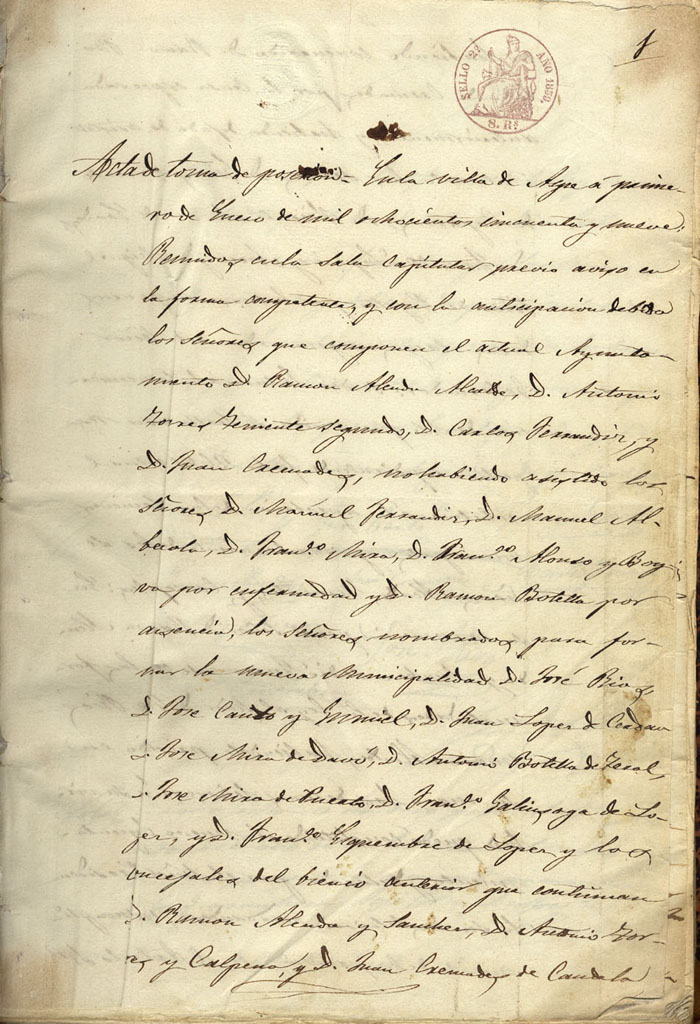 1
SELLO 2º AÑO 1859.
8. Rs
Acta de toma de posesion = En la villa de Aspe á prime-
ro de Enero de mil ochocientos cincuenta y nueve:
Reunidos en la Sala Capitular previo aviso en
la forma competente, y con la anticipacion debida
los Señores que componen el actual Ayunta-
miento D. Ramon Alenda Alcalde, D. Antonio
Torres Teniente segundo, D. Carlos Ferrandiz, y
D. Juan Cremades, no habiendo asistido los
Señores D. Manuel Ferrandiz, D. Manuel Al-
berola, D. Franco Mira, D. Franco Alonso y
por enfermedad y D. Ramon Botella por
ausencia, los Señores nombrados para for-
mar la nueva Municipalidad D. José Rico,
D. Jose Canto y D. Juan Lopez de
D. Jose Mira de Davó, D. Antonio Botella de
D. Jose Mira de Puerto, D. Franco Galinsoga de Lo-
pez, y D. Franco Esquembre de Lopez y los
concejales del bienio anterior que continuan
D. Ramon Alenda y Sanchez, D. Antonio Tor-
res y Calpena, y D. Juan Cremades de Candela